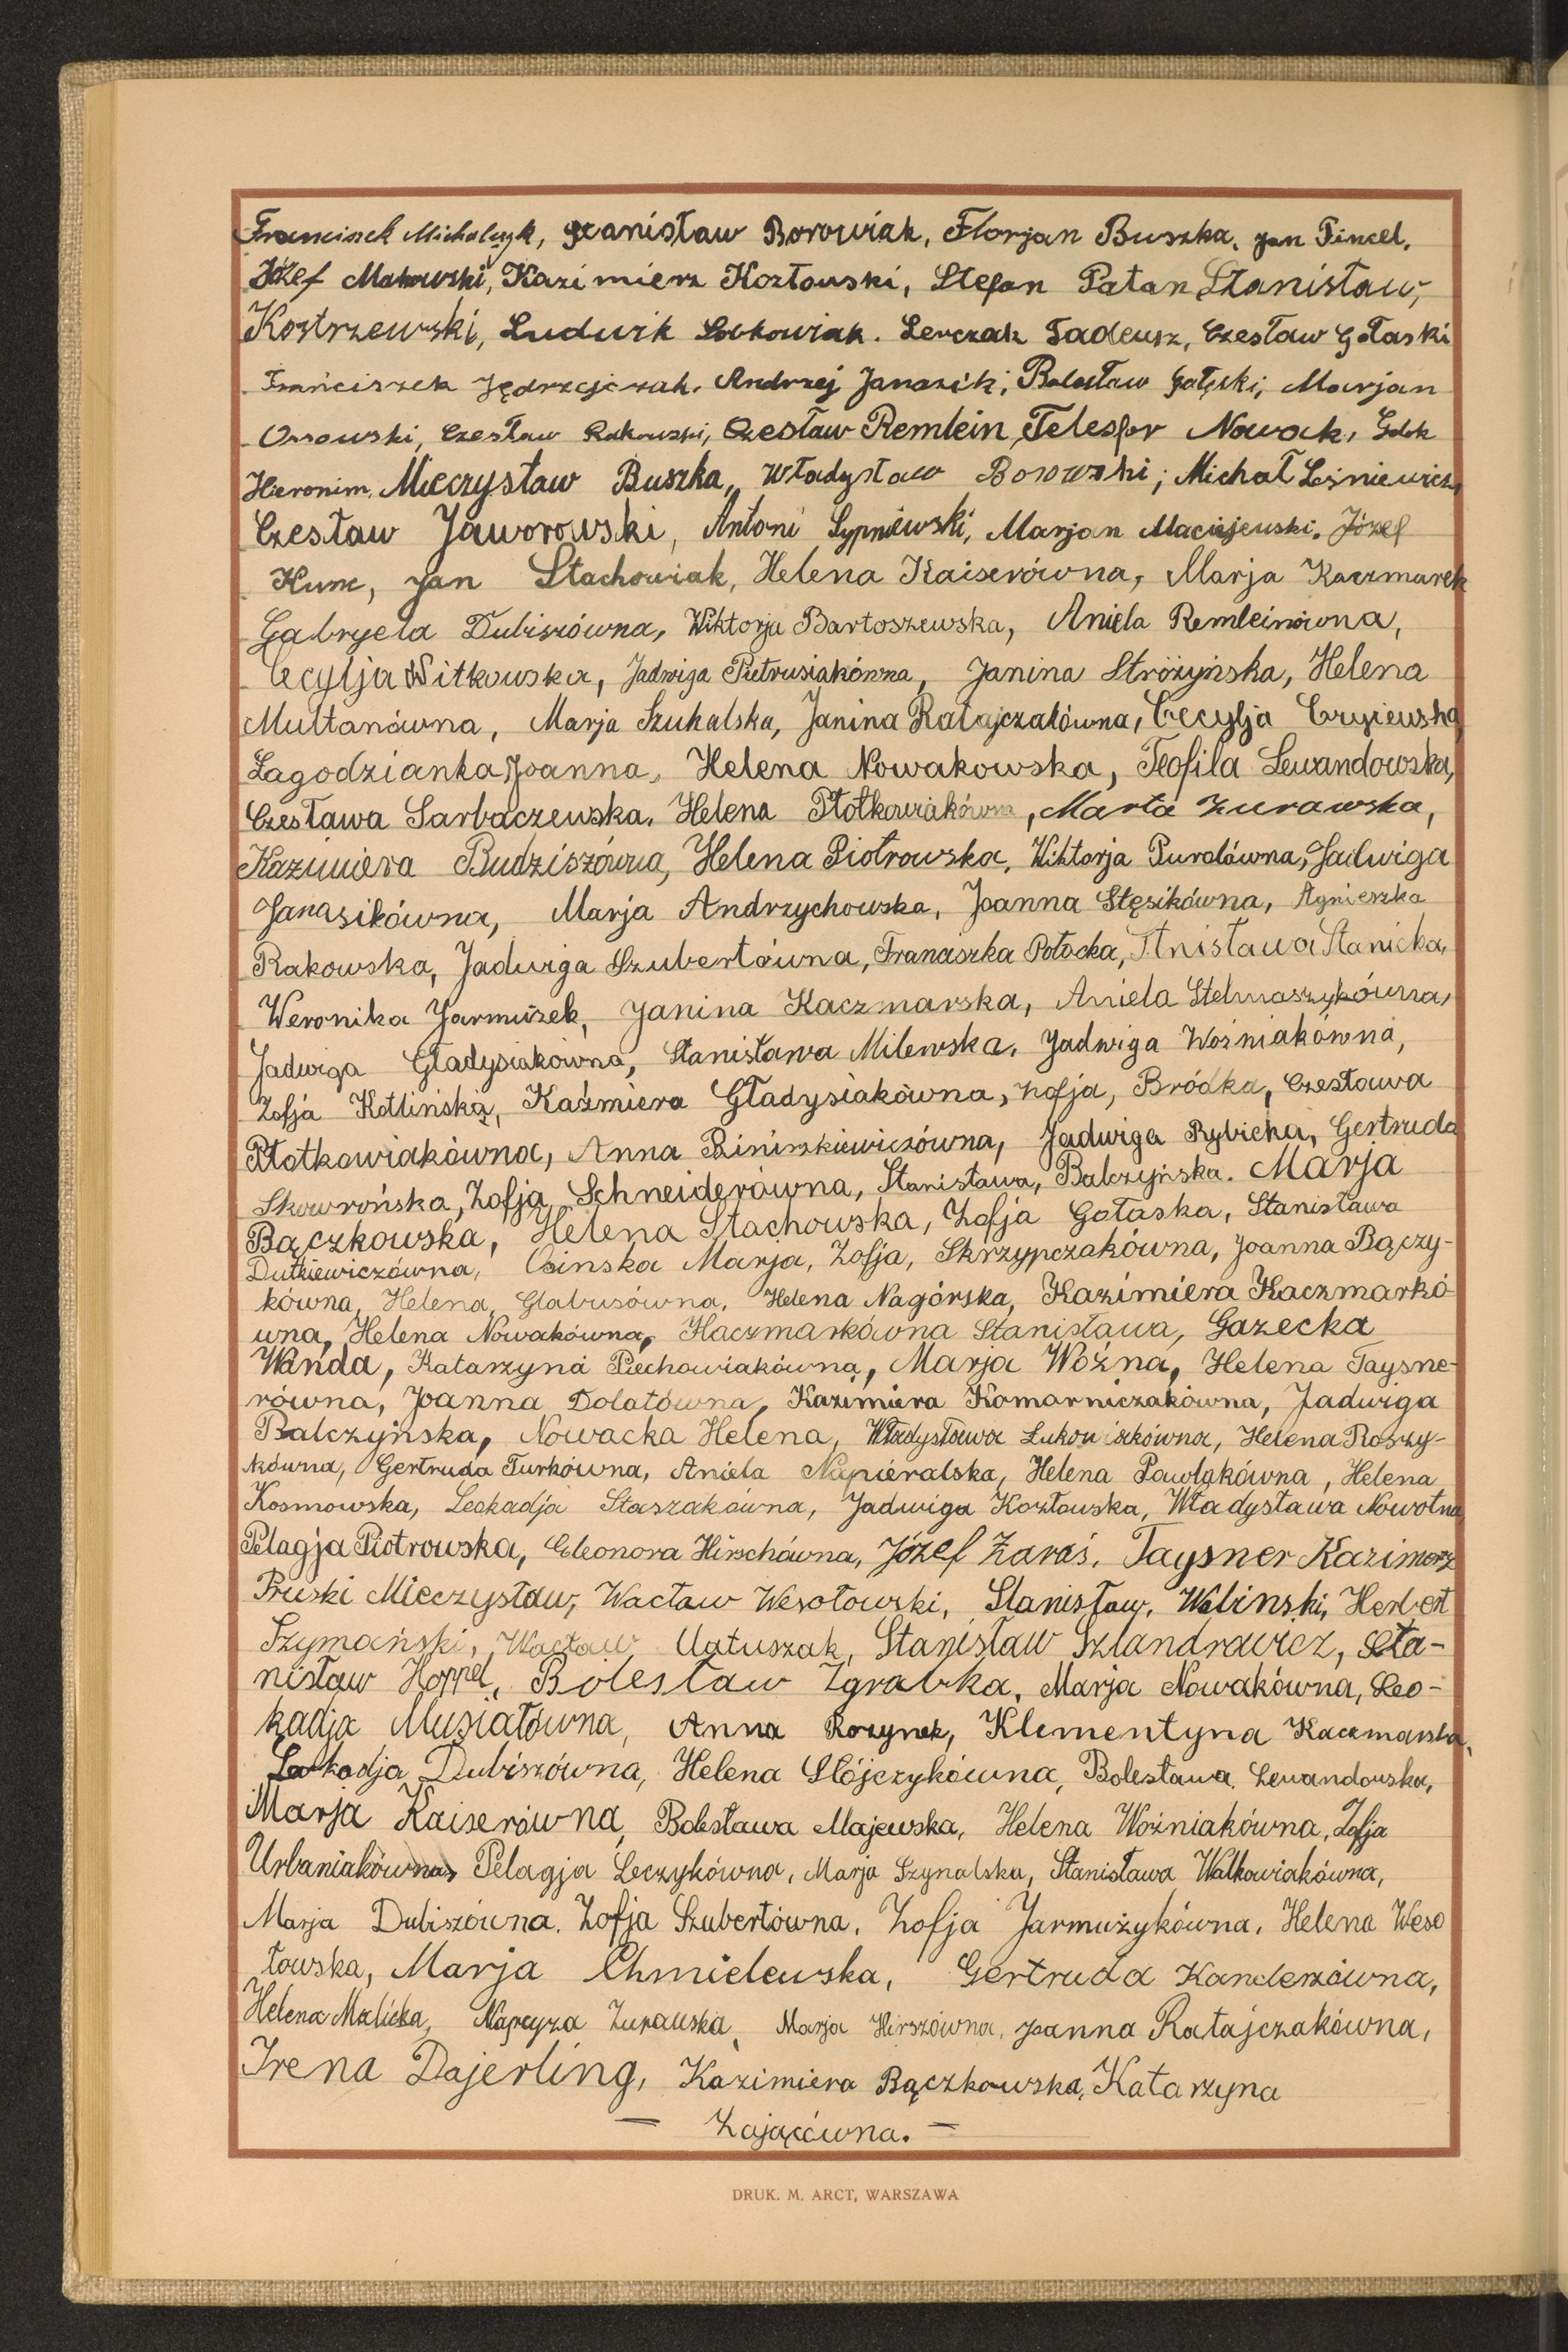 Franciszek Michalczyk, Stanisław Borowiak, Florjan Buszka, Jan Pincel,
Józef Makowski, Kazimierz Kozłowski, Stefan Patan Stanisław,
Kostrzewski, Ludwik Lerczak Tadeusz, Czesław Gołaski
Franciszek Jędrzejczak. Andrzej Janasik, Bolesław Gałęski, Marjan
Ossowski, Czesław Rakowski, Czesław Remlein, Telesfor Nowak,
Hieronim, Mieczysław Buszka, Władysław Borowski; Michał Leśniewicz,
Czesław Jaworowski, Antoni Sypniewski, Marjan Maciejewski. Józef
Kunc, Jan Stachowiak, Helena Kaiserówna, Marja Kaczmarek
Gabryela Dubiszówna, Wiktorja Bartoszewska, Aniela Remleinówna,
Cecylja Witkowska, Jadwiga Pietrusiakówna, Janina Stróżyńska, Helena
Multanówna, Marja Szukalska, Janina Ratajczakówna, Cecylja
Łagodzianka Joanna, Helena Nowakowska, Teofila Lewandowska,
Czesława Sarbaczewska. Helena Płotkowiakówna, Marta Żurawska,
Kazimiera Budziszówna, Helena Piotrowska, Wiktorja Puralówna, Jadwiga
Janasikówna, Marja Andrzychowska, Joanna Stęsikówna, Agnieszka
Rakowska, Jadwiga Szubertówna, Franciszka Potocka, Stnisława Stanicka,
Weronika Jarmużek, Janina Kaczmarska, Aniela Stelmaszykówna,
Jadwiga Gładysiakówna, Stanisława Milewska, Jadwiga Woźniakówna,
Zofja Kotlińska, Kaźmiera Gładysiakówna, Zofja, Bródka, Czesława
Płotkowiakówna, Anna Jadwiga Rybicka, Gertruda
Skowrońska, Zofja Schneiderówna, Stanisława, Balczyńska. Marja
Bączkowska, Helena Stachowska, Zofja Gołaska, Stanisława
Dutkiewiczówna, Osinska Marja, Zofja, Skrzypczakówna, Joanna Bączy-
kówna, Helena, Glabusówna, Helena Nagórska, Kazimiera Kaczmarkó-
wna, Helena Nowakówna, Kaczmarkówna Stanisława, Gazecka
Wanda, Katarzyna Piechowiakówna, Marja Woźna, Helena Taysne-
równa, Joanna Dolatówna, Kazimiera Komarniczakówna, Jadwiga
Balczyńska, Nowacka Helena, Władysława Łukowiakówna, Helena Roszy-
kówna, Gertruda Turkówna, Aniela Napieralska, Helena Pawlakówna, Helena
Kosmowska, Leokadja Staszakówna, Jadwiga Kozłowska, Władysława Nowotna
Pelagja Piotrowska, Eleonora Hirschówna, Józef Zaraś. Taysner Kazimierz
Pruski Mieczysław, Wacław Wesołowski, Stanisław, Woliński, Herbert
Szymański, Wacław Matuszak, Stanisław Szlandrowicz, Sta-
nisław Hoppel, Bolesław Zgrabka, Marja Nowakówna, Leo-
kadja Musiałówna, Anna Rozynek, Klementyna Kaczmarska,
Leokadja Dubiszówna, Helena Stójczykówna, Bolesława Lewandowska,
Marja Kaiserówna, Bolesława Majewska, Helena Woźniakówna, Zofja
Urbaniakówna, Pelagja Leczykówna, Marja Szynalska, Stanisława Walkowiakówna,
Marja Dubiszówna. Zofja Szubertówna. Zofja Jarmużykówna. Helena Weso
łowska, Marja Chmielewska, Gertruda Kanderzówna,
Helena Malicka, Narcyza Żurawska, Marja Hirszówna, Joanna Ratajczakówna,
Irena Dajerling, Kazimiera Bączkowska, Katarzyna
— Zającówna. —
DRUK. M. ARCT, WARSZAWA